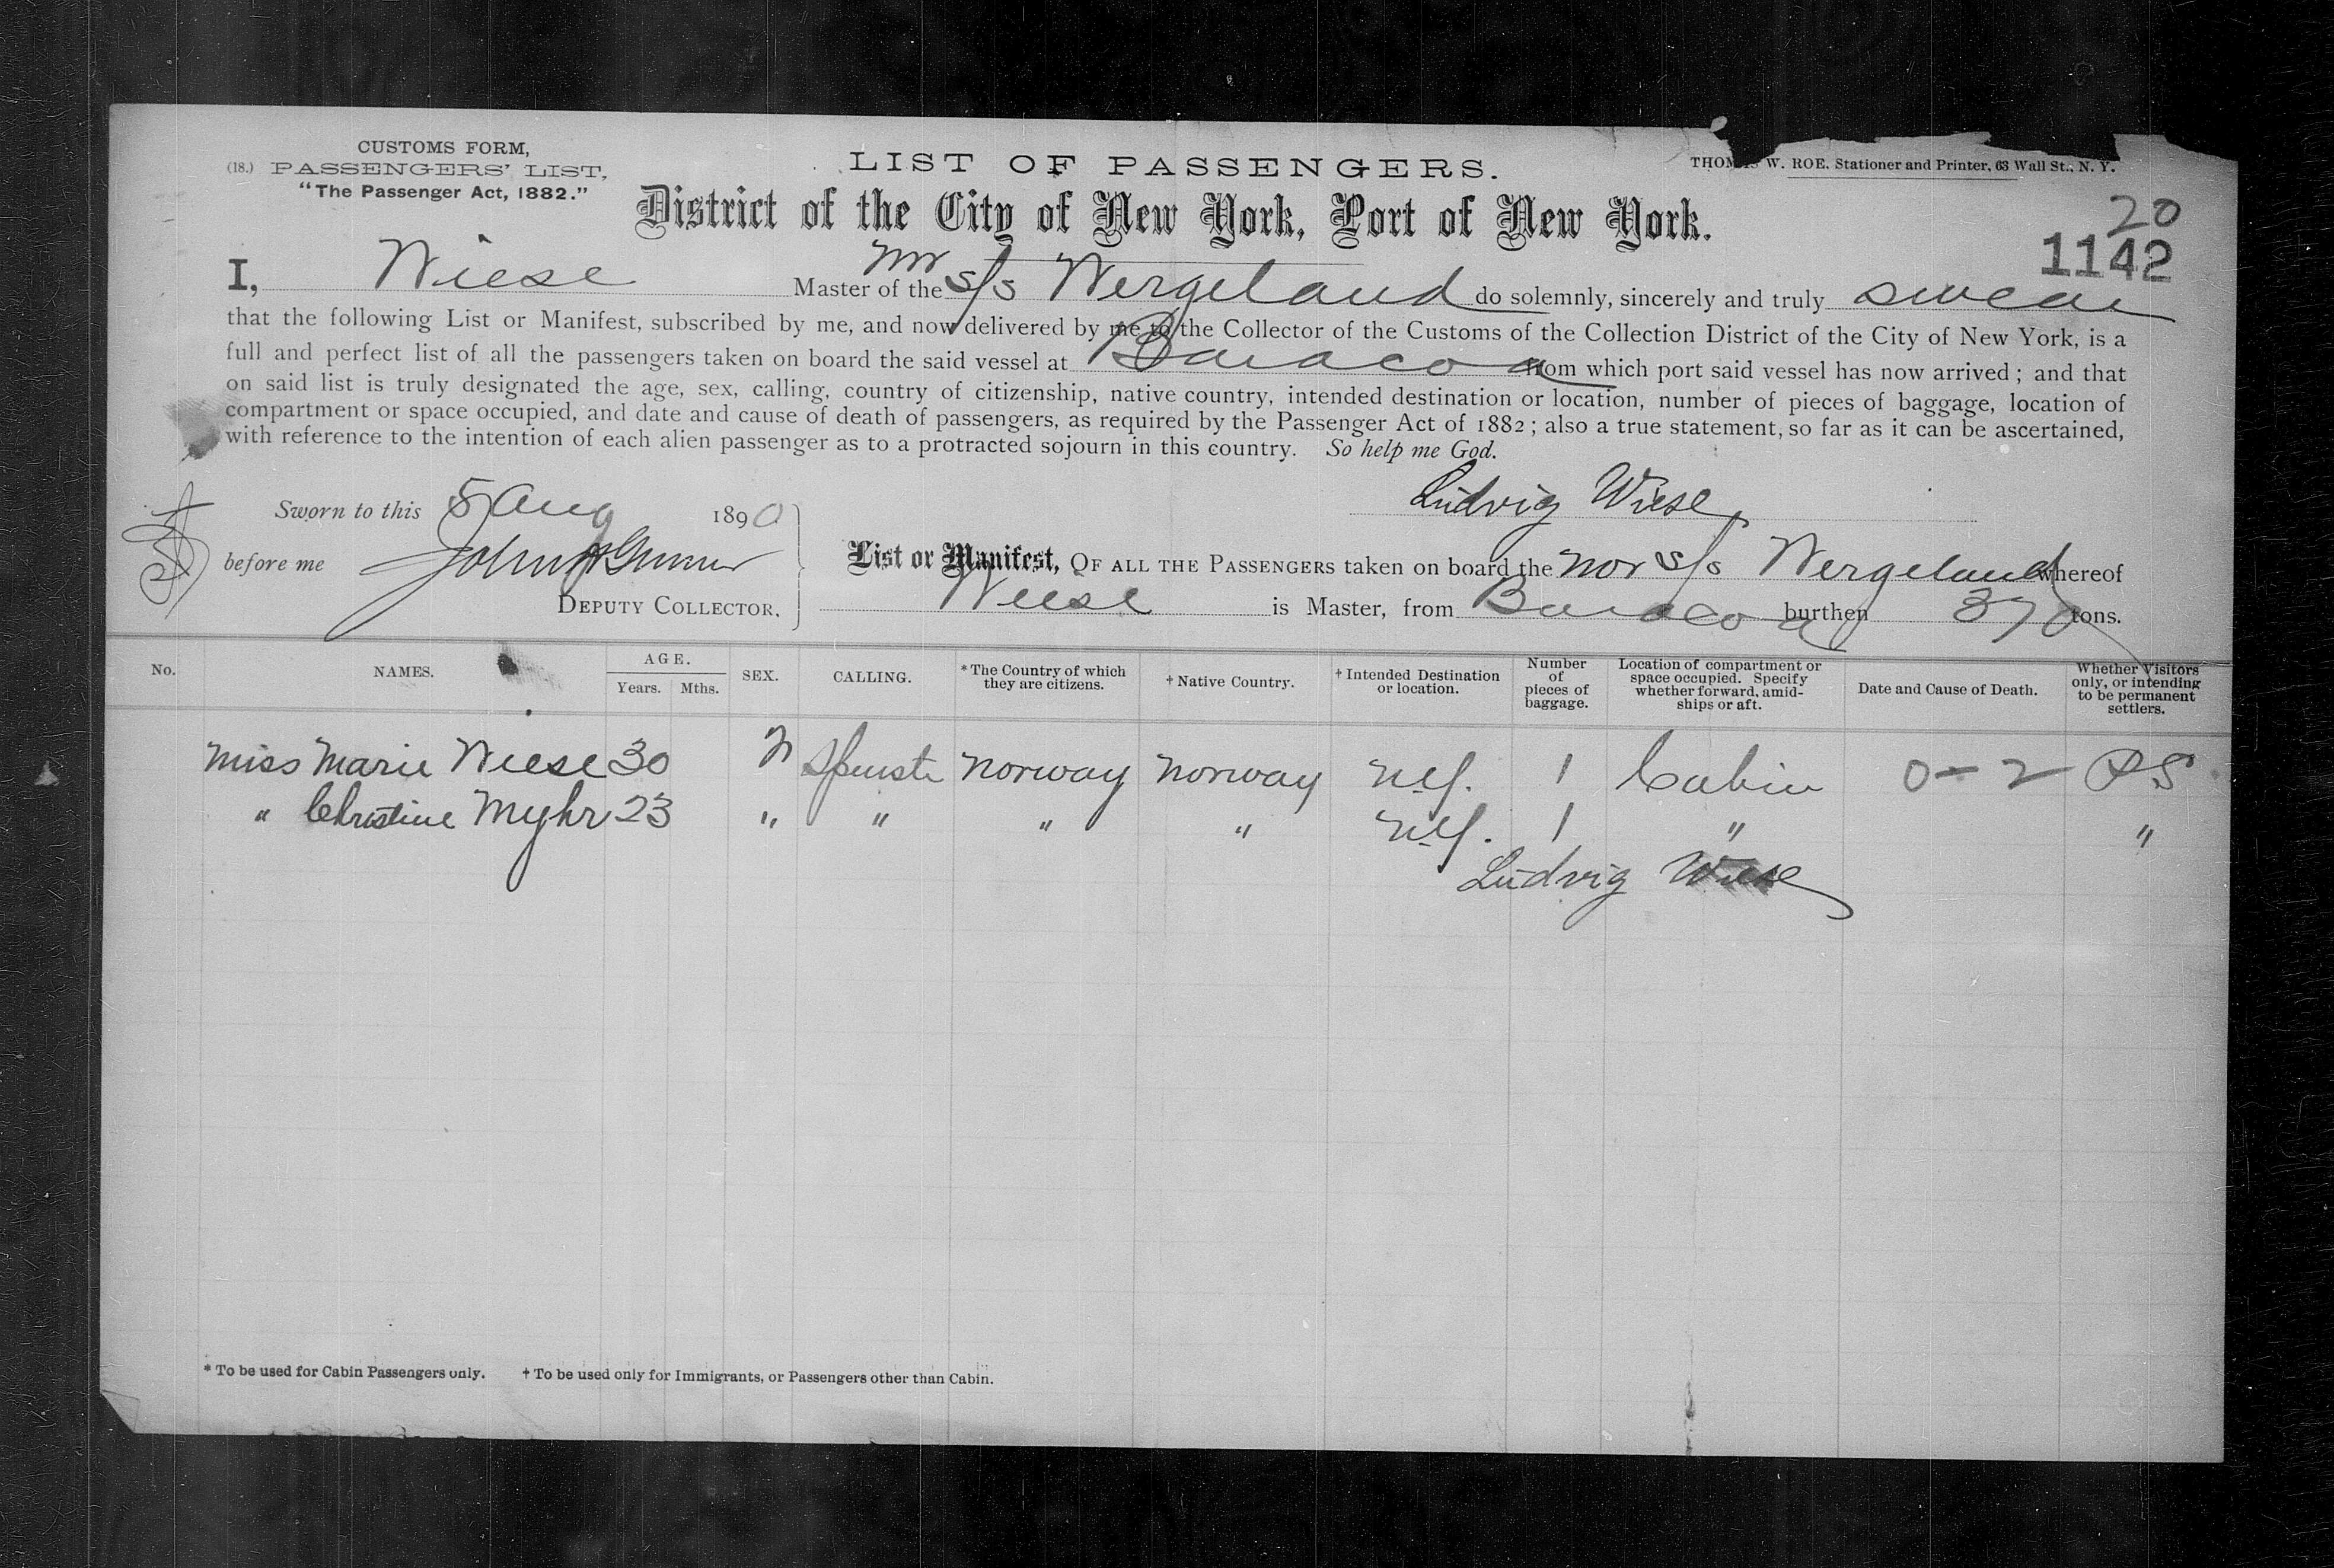 CUSTOMS FORM,
(18.) PASSENGERS' LIST,
"The Passenger Act, 1882."
LIST OF PASSENGERS.
THOMAS W. ROE, Stationer and Printer, 63 Wall St., N. Y.
District of the City of New York, Port of New York.
20
1142
I, Wiese Master of the Nor s/s Wergeland do solemnly, sincerely and truly swear
that the following List or Manifest, subscribed by me, and now delivered by me to the Collector of the Customs of the Collection District of the City of New York, is a
full and perfect list of all the passengers taken on board the said vessel at Baracoa from which port said vessel has now arrived; and that
on said list is truly designated the age, sex, calling, country of citizenship, native country, intended destination or location, number of pieces of baggage, location of
compartment or space occupied, and date and cause of death of passengers, as required by the Passenger Act of 1882; also a true statement, so far as it can be ascertained,
with reference to the intention of each alien passenger as to a protracted sojourn in this country. So help me God.
Sworn to this 5 Aug 1890
Ludvig Wiese
before me John
DEPUTY COLLECTOR.
List or Manifest, OF ALL THE PASSENGERS taken on board the Nor s/s Wergeland whereof
Wiese is Master, from Baracoa burthen 370 tons.
No. NAMES. AGE. Years. Mths. SEX. CALLING. *The Country of which they are citizens. †Native Country. †Intended Destination or location. Number of pieces of baggage. Location of compartment or space occupied. Specify whether forward, amidships or aft. Date and Cause of Death. Whether Visitors only, or intending to be permanent settlers.
Miss Marie Wiese 30 Spinster Norway Norway N.Y. 1 Cabin 0-2 PS
" Christine Myhr 23 " " " " N.Y. 1 " "
Ludvig Wiese
* To be used for Cabin Passengers only. † To be used only for Immigrants, or Passengers other than Cabin.